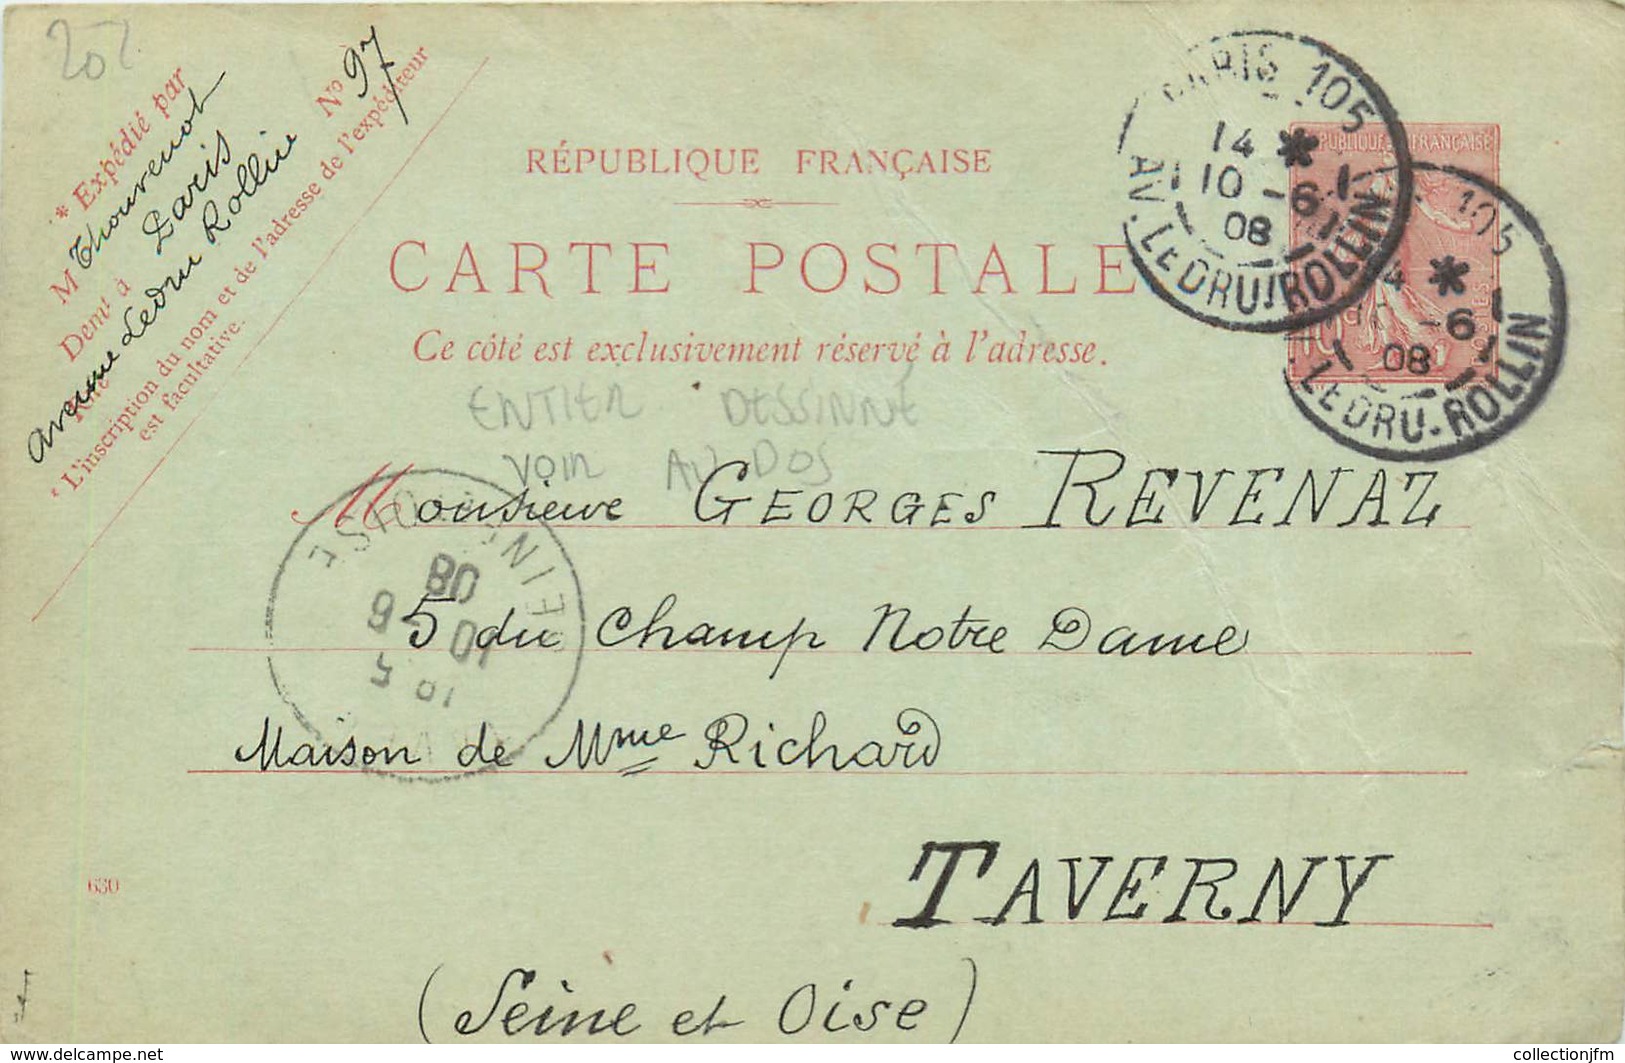 202
* Expédié par
M Thouvenot
Demt à Paris
Rue Avenue Ledru Rollin No 97
* L'inscription du nom et de l'adresse de l'expéditeur
est facultative.
RÉPUBLIQUE FRANÇAISE
CARTE POSTALE
Ce côté est exclusivement réservé à l'adresse.
PARIS 105
14 *
10 - 6
08
AV. LEDRU-ROLLIN
RÉPUBLIQUE FRANÇAISE
POSTES
10c
105
14 *
-6
08
LEDRU-ROLLIN
ENTIER DESSINNÉ
VOIR AU DOS
Monsieur GEORGES REVENAZ
5 du Champ Notre Dame
Maison de Mme Richard
TAVERNY
(Seine et Oise)
SEINE-ET-OISE
08
10 6
630
www.delcampe.net
collectionjfm